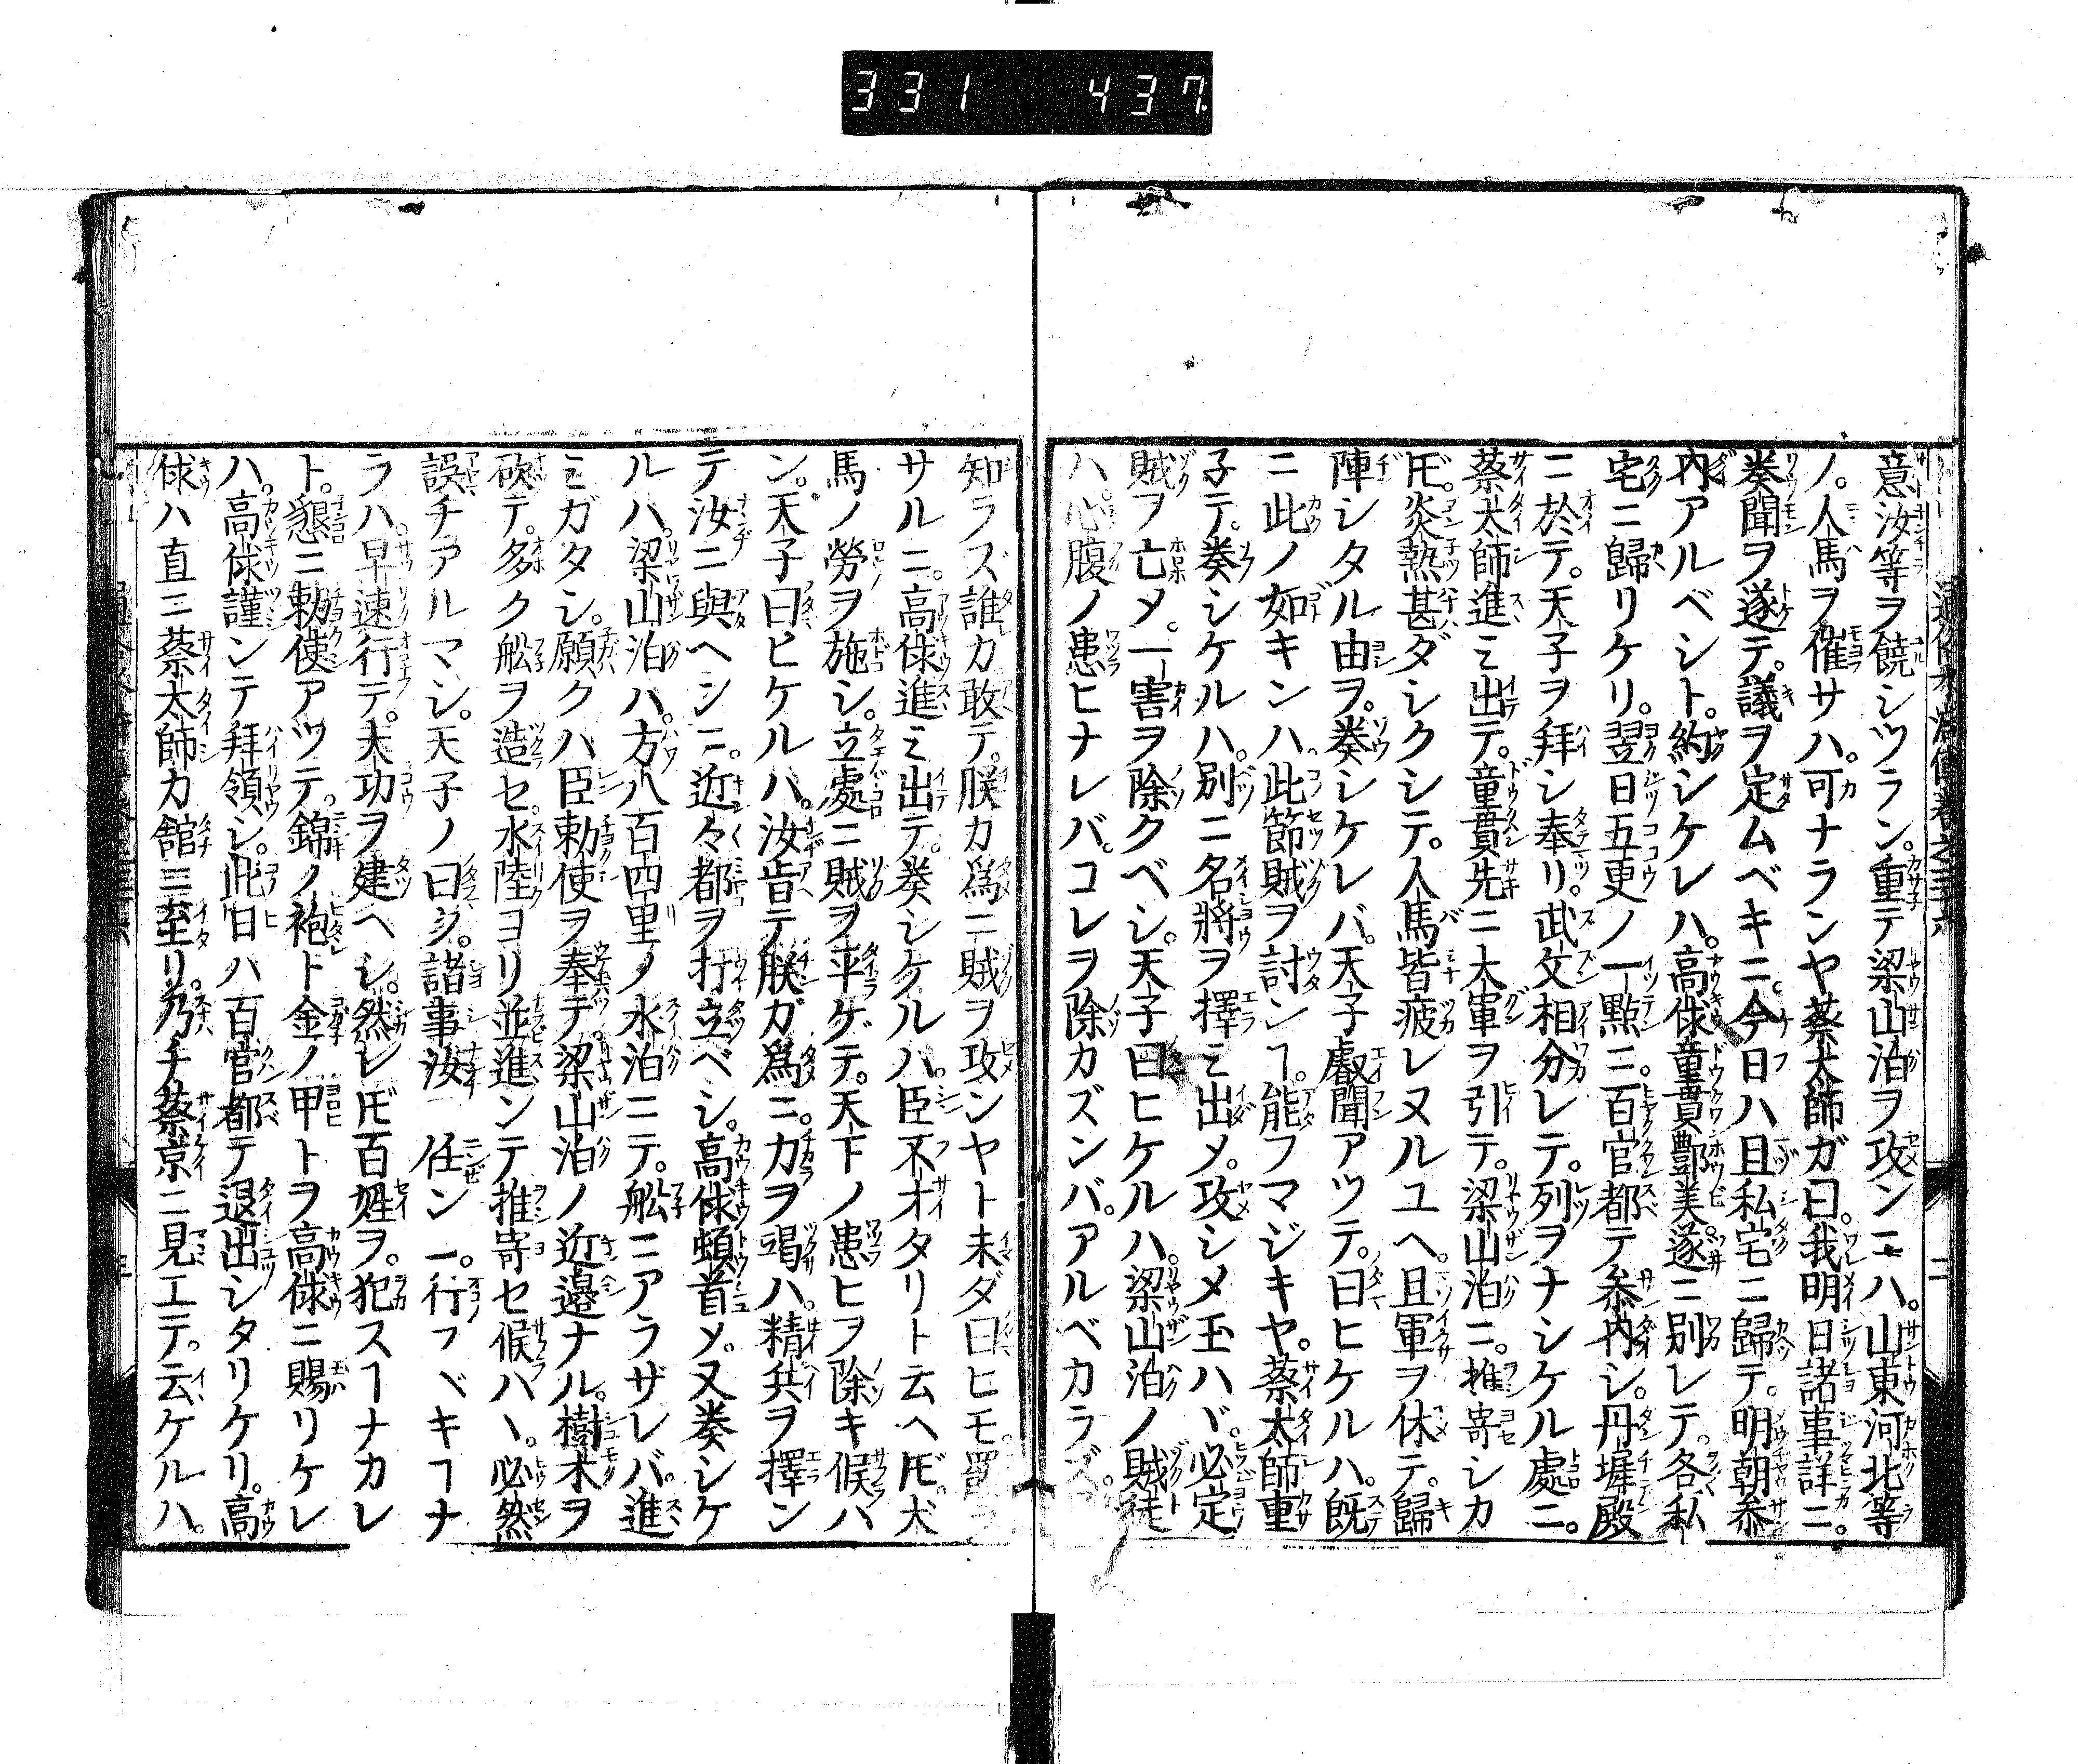 331 437
意汝等ヲ饒シツラン。重テ梁山泊ヲ攻ンニハ。山東河北等
ノ。人馬ヲ催サハ。可ナランヤ蔡太師ガ曰。我明日諸事詳ニ。
奏聞ヲ遂テ。議ヲ定ムベキニ。今日ハ且私宅ニ歸テ。明朝叅
內アルベシト。約シケレハ。高俅童貫酆美。遂ニ別レテ。各私
宅ニ歸リケリ。翌日五更ノ一點ニ。百官都テ叅內シ。丹墀殿
ニ於テ。天子ヲ拜シ奉リ。武文相分レテ。列ヲナシケル處ニ。
蔡太師進ミ出テ。童貫先ニ大軍ヲ引テ。梁山泊ニ。推寄シカ
𪜈。炎熱甚ダシクシテ。人馬皆疲レヌルユヘ。且軍ヲ休テ。歸
陣シタル由ヲ。奏シケレバ。天子叡聞アツテ。曰ヒケルハ。既
ニ此ノ如キンハ。此節賊ヲ討ンヿ。能フマジキヤ。蔡太師重
子テ。奏シケルハ。別ニ名將ヲ擇ミ出メ。攻シメ玉ハヾ。必定
賊ヲ亡メ。一害ヲ除クベシ。天子曰ヒケルハ。梁山泊ノ賊徒
ハ。心腹ノ患ヒナレバ。コレヲ除カズンバ。アルベカラズ。
知ラズ誰カ敢テ。朕カ爲ニ賊ヲ攻ンヤト未ダ曰ヒモ。罷ニ
サルニ。高俅進ミ出テ。奏シケルハ。臣不才タリト云ヘ𪜈。犬
馬ノ勞ヲ施シ。立處ニ賊ヲ平ゲテ。天下ノ患ヒヲ除キ候ハ
ン。天子曰ヒケルハ。汝昔テ朕ガ爲ニ。力ヲ竭ハ。精兵ヲ擇ン
テ汝ニ與ヘンニ。近々都ヲ打立ベシ。高俅頓首メ。又奏シケ
ルハ。梁山泊ハ。方八百四里ノ水泊ニテ。舩ニアラザレバ。進
ミガタシ。願クハ臣勅使ヲ奉テ。梁山泊ノ近邊ナル。樹木ヲ
砍テ。多ク舩ヲ造セ。水陸ヨリ並進ンテ推寄セ候ハヽ。必然
誤チアルマシ。天子ノ曰ク。諸事汝 任ン 。行フベキヿナ
ラハ。早速行テ。大功ヲ建ヘシ。然レ𪜈百姓ヲ。犯スヿナカレ
ト。懇ニ勅使アツテ。錦ノ袍ト金ノ甲トヲ高俅ニ賜リケレ
ハ。高俅謹ンテ拜領シ。此日ハ百官都テ退出シタリケリ。高
俅ハ直ニ蔡太師カ舘ニ至リ。乃チ蔡京ニ見エテ。云ケルハ。